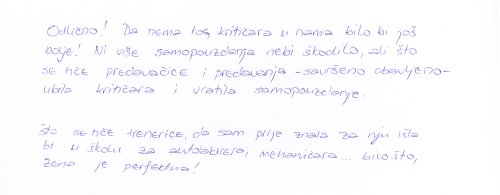 Odlično! Da nema tog kritičara u nama bilo bi još
bolje! Ni više samopouzdanja nebi škodilo, ali što
se tiče predavačice i predavanja - savršeno obavljeno -
ubila kritičara i vratila samopouzdanje.
što se tiče trenerice, da sam prije znala za nju išla
bi u školu za autolakirera, mehaničara... bilo što,
žena je perfektna!